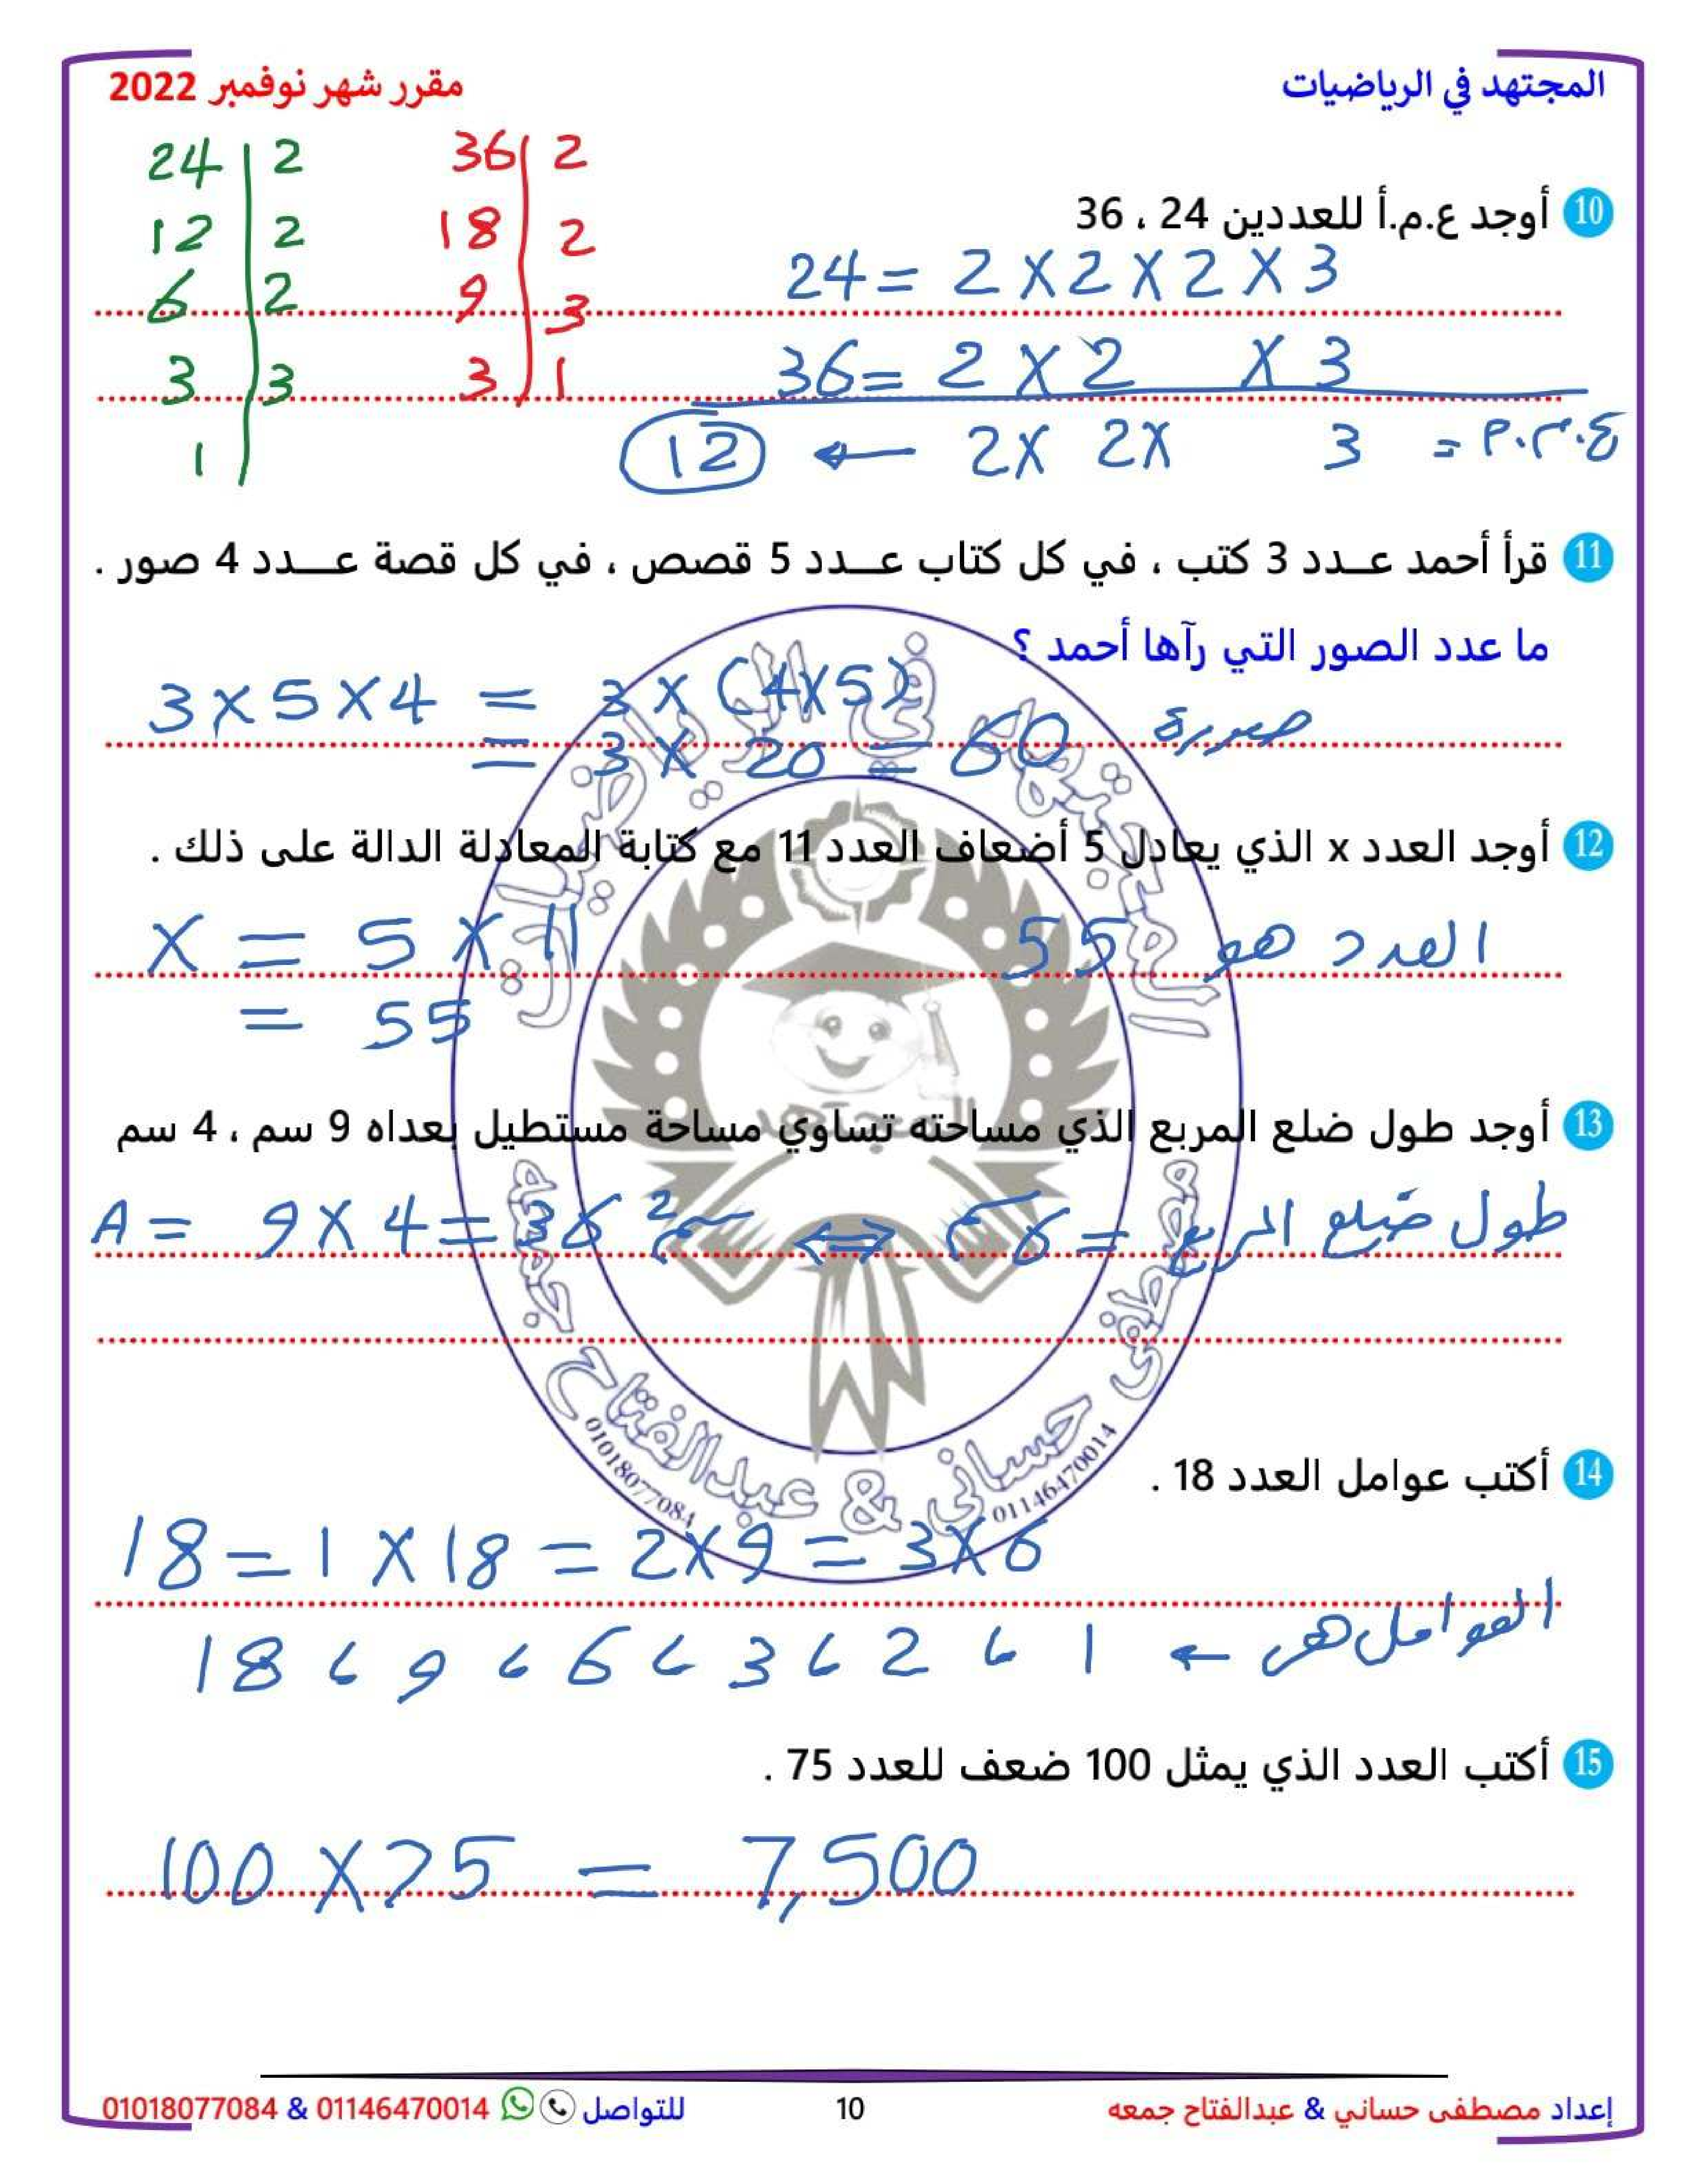 المجتهد في الرياضيات
مقرر شهر نوفمبر 2022
24 | 2
12 | 2
6 | 2
3 | 3
1 |
36 | 2
18 | 2
9 | 3
3 | 1
10 أوجد ع.م.أ للعددين 24 ، 36
24 = 2 X 2 X 2 X 3
36 = 2 X 2 X 3
ع.م.م = 2 X 2 X 3 ← 12
11 قرأ أحمد عــدد 3 كتب ، في كل كتاب عــدد 5 قصص ، في كل قصة عــدد 4 صور .
ما عدد الصور التي رآها أحمد ؟
3 X 5 X 4 = 3 X (4X5)
= 3 X 20 = 60 صورة
12 أوجد العدد x الذي يعادل 5 أضعاف العدد 11 مع كتابة المعادلة الدالة على ذلك .
X = 5 X 11
العدد هو 55
= 55
13 أوجد طول ضلع المربع الذي مساحته تساوي مساحة مستطيل بعداه 9 سم ، 4 سم
A = 9 X 4 = 36 سم² ⇔ طول ضلع المربع = 6 سم
14 أكتب عوامل العدد 18 .
18 = 1 X 18 = 2X9 = 3X6
العوامل هى ← 1 ، 2 ، 3 ، 6 ، 9 ، 18
15 أكتب العدد الذي يمثل 100 ضعف للعدد 75 .
100 X 75 = 7,500
المجتهد في الرياضيات
المجتهد
مصطفى حساني & عبدالفتاح جمعه
01146470014
01018077084
إعداد مصطفى حساني & عبدالفتاح جمعه
10
للتواصل 01146470014 & 01018077084